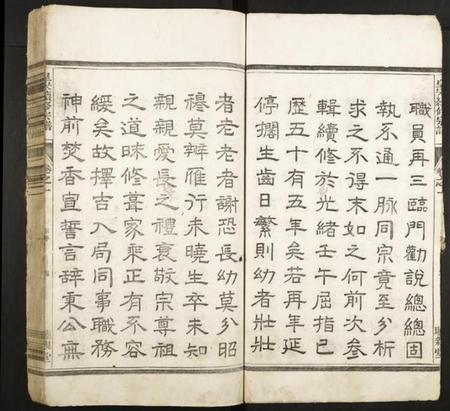 職員再三臨門勸說總總固
執系通一脈同宗竟至分析
求之不得末如之何前次叅
輯續修於光緒壬午屈指已
歷五十有五年矣若再年延
停擱生齒日繁則幼者壯壯
者老老者謝恐長幼莫分昭
穆莫辨雁行未曉生卒未知
親親愛長之禮衰敬宗尊祖
之道昧修葺家乘正有不容
緩矣故擇吉入局同事職務
神前焚香宣誓言辭秉公無